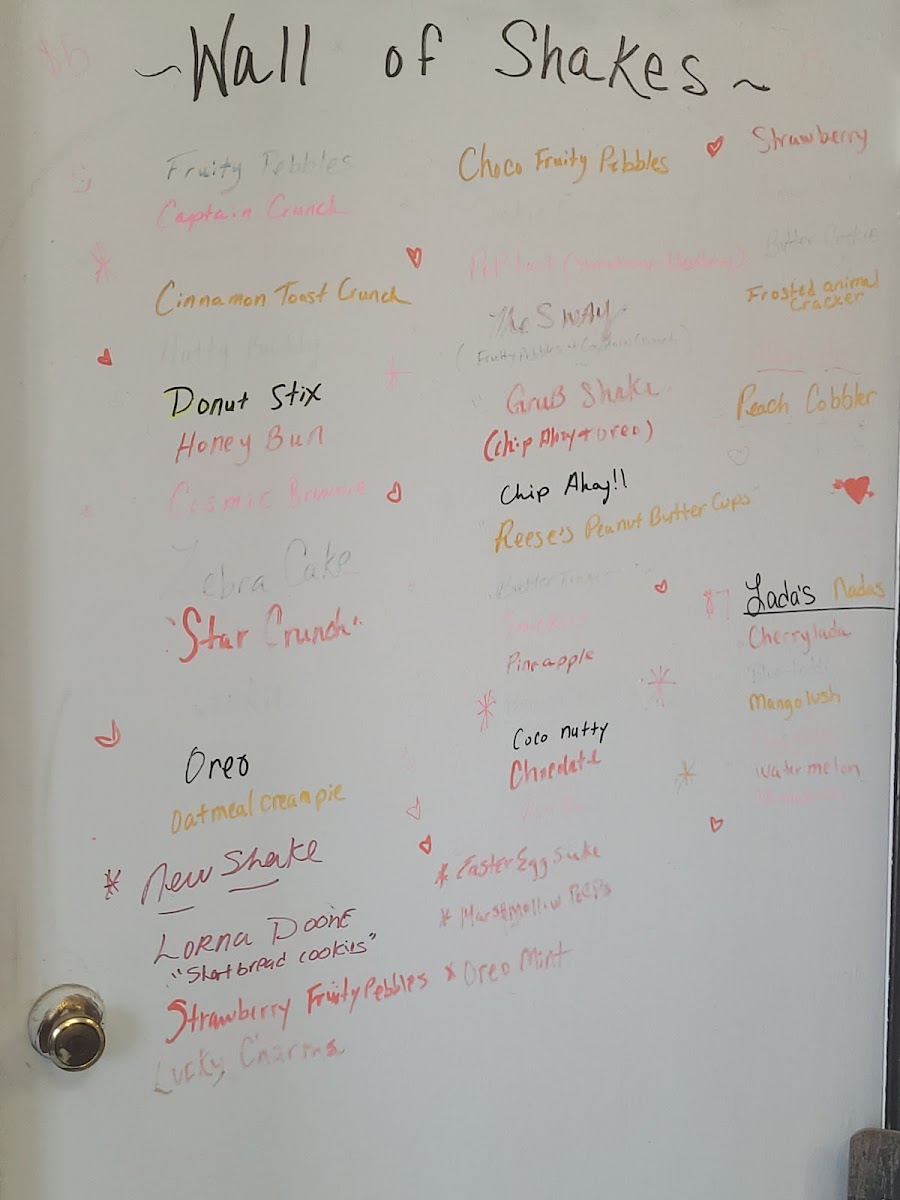 ~Wall of Shakes~
$5
Fruity Pebbles
Captain Crunch
Cinnamon Toast Crunch
Donut Stix
Honey Bun
Cosmic Brownie
Zebra Cake
"Star Crunch"
Oreo
Oatmeal Creampie
* New Shake
Lorna Doone
"Shortbread cookies"
Strawberry Fruity Pebbles
Lucky Charms
Choco Fruity Pebbles
The SWAY
(Fruity Pebbles + Captain Crunch)
GruB Shake
(Chip Ahoy + oreo)
Chip Ahoy!!
Reese's Peanut Butter Cups
Snickers
Pineapple
Coco nutty
Chocolate
Vanilla
* Easter Egg
* Marshmallow PeePs
* Oreo Mint
Strawberry
Butter Cookie
Frosted animal
cracker
Peach Cobbler
$7 Lada's Nadas
Cherrylada
Mango lush
Watermelon